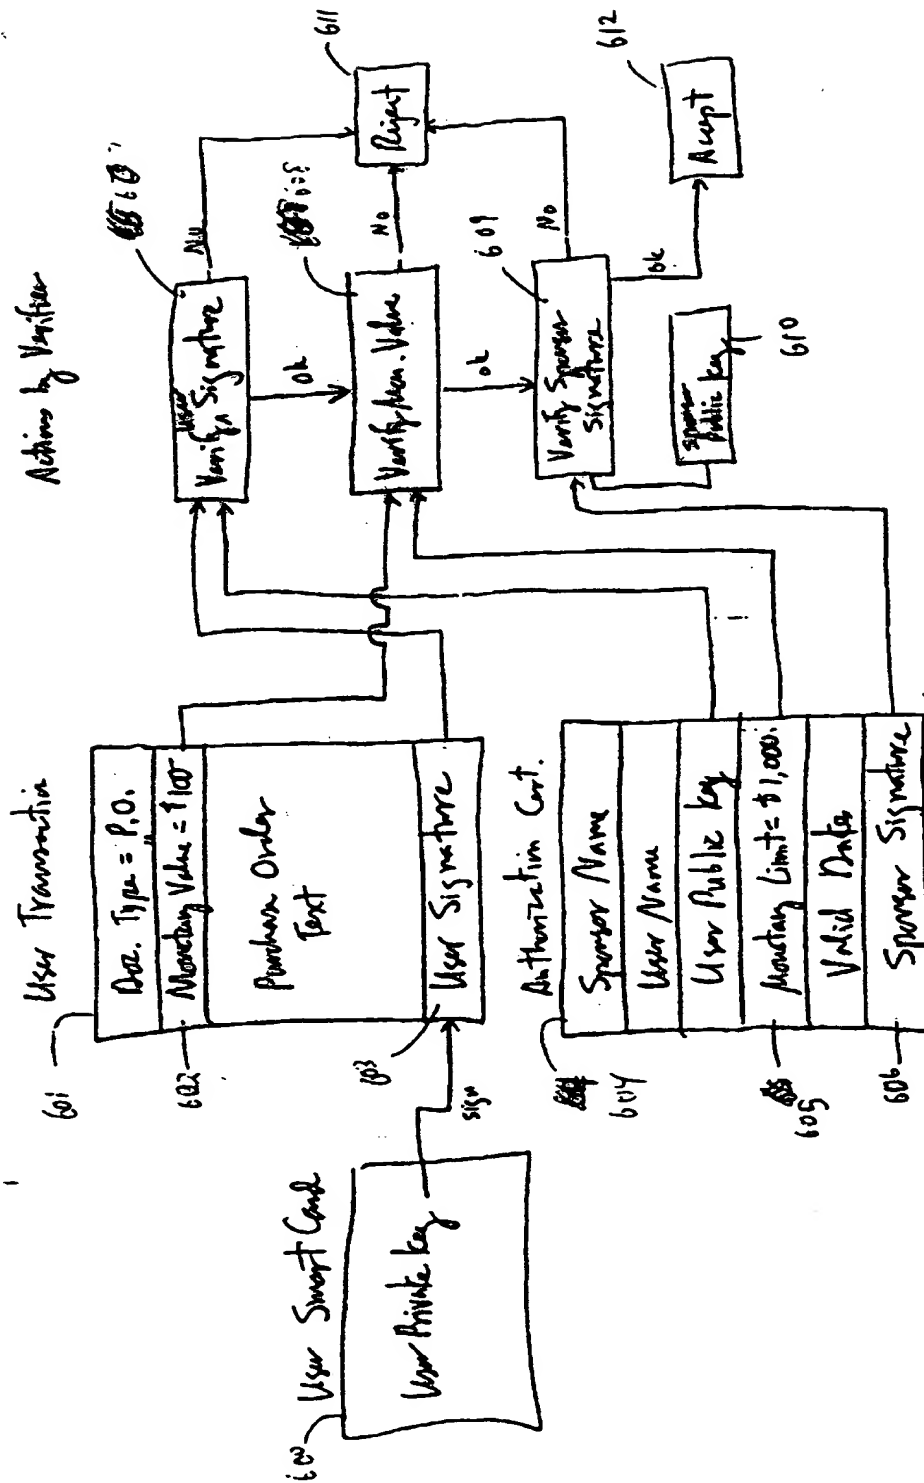 User Smart Card
600
User Private Key
sign
User Transaction
601
Doc. Type = P.O.
602
Monetary Value = $100
Purchase Order
Text
603
User Signature
Authorization Cert.
604
Sponsor Name
User Name
User Public Key
605
Monetary Limit = $1,000.
Valid Date
606
Sponsor Signature
Actions by Verifier
User
Verify Signature
No
ok
Verify Mon. Value
No
ok
609
Verify Sponsor
Signature
No
ok
Sponsor
Public Key
610
Reject
611
Accept
612